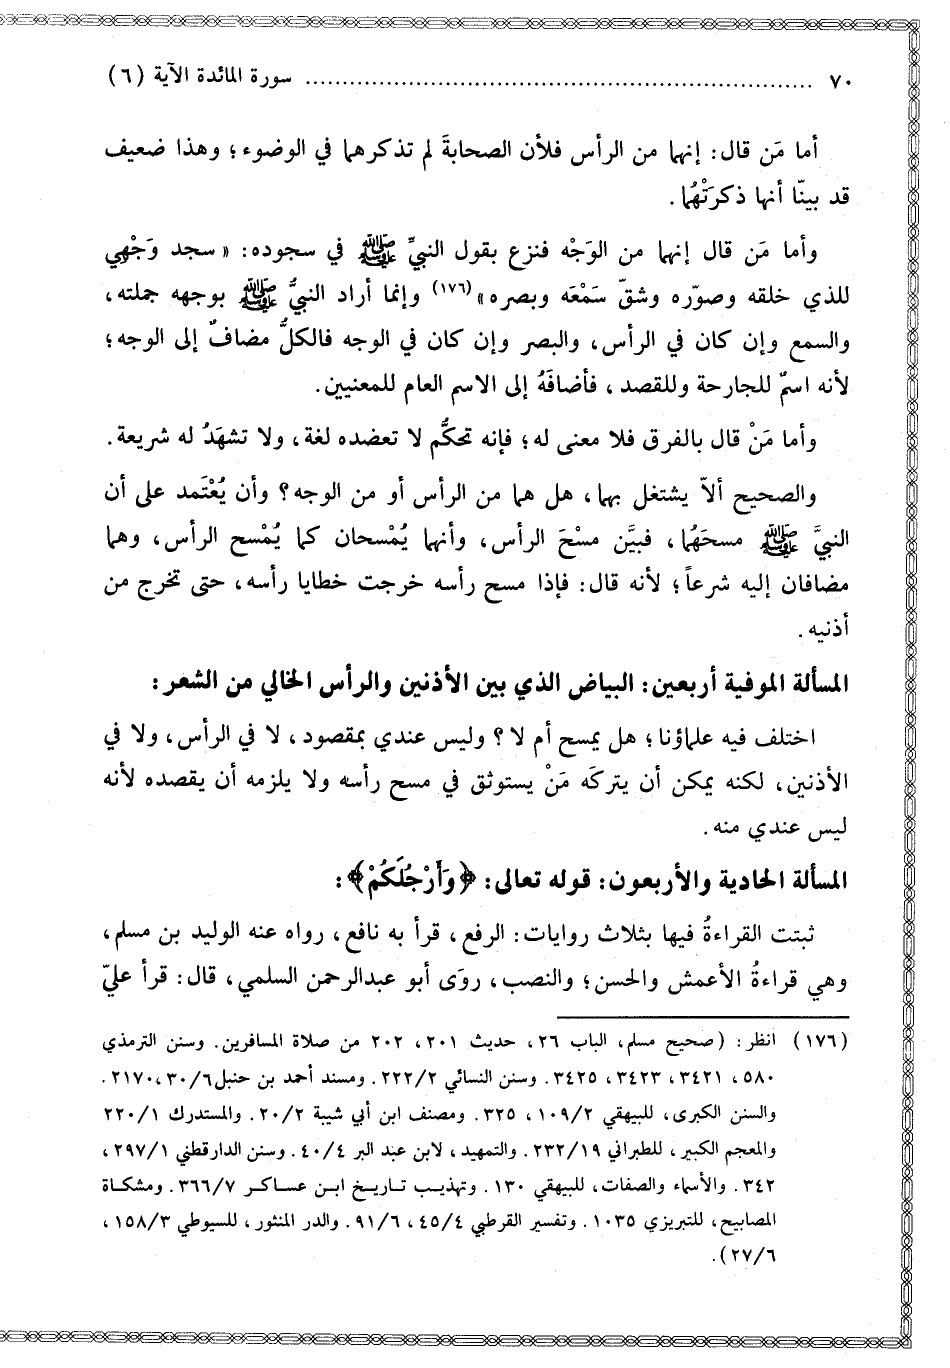 ٧٠ ........................................................................ سورة المائدة الآية (٦)
أما مَن قال: إنهما من الرأس فلأن الصحابةَ لم تذكرهما في الوضوء؛ وهذا ضعيف
قد بينّا أنها ذكرَتْهُما.
وأما مَن قال إنهما من الوَجْه فنزع بقول النبيِّ ﷺ في سجوده: «سجد وَجْهِي
للذي خلقه وصوّره وشقّ سَمْعَه وبصره»(١٧٦) وإنما أراد النبيُّ ﷺ بوجهه جملته،
والسمع وإن كان في الرأس، والبصر وإن كان في الوجه فالكلُّ مضافٌ إلى الوجه؛
لأنه اسمٌ للجارحة وللقصد، فأضافَهُ إلى الاسم العام للمعنيين.
وأما مَنْ قال بالفرق فلا معنى له؛ فإنه تحكُّم لا تعضده لغة، ولا تشهَدُ له شريعة.
والصحيح ألاّ يشتغل بهما، هل هما من الرأس أو من الوجه؟ وأن يُعْتَمد على أن
النبيَّ ﷺ مسحَهُما، فبيَّن مسْحَ الرأس، وأنهما يُمْسحان كما يُمْسح الرأس، وهما
مضافان إليه شرعاً؛ لأنه قال: فإذا مسح رأسه خرجت خطايا رأسه، حتى تخرج من
أذنيه.
المسألة الموفية أربعين: البياض الذي بين الأذنين والرأس الخالي من الشعر:
اختلف فيه علماؤنا؛ هل يمسح أم لا؟ وليس عندي بمقصود، لا في الرأس، ولا في
الأذنين، لكنه يمكن أن يتركَه مَنْ يستوثق في مسح رأسه ولا يلزمه أن يقصده لأنه
ليس عندي منه.
المسألة الحادية والأربعون: قوله تعالى: ﴿وَأَرْجُلَكُمْ﴾:
ثبتت القراءةُ فيها بثلاث روايات: الرفع، قرأ به نافع، رواه عنه الوليد بن مسلم،
وهي قراءةُ الأعمش والحسن؛ والنصب، روَى أبو عبدالرحمن السلمي، قال: قرأ عليّ
(١٧٦) انظر: (صحيح مسلم، الباب ٢٦، حديث ٢٠١، ٢٠٢ من صلاة المسافرين. وسنن الترمذي
٥٨٠، ٣٤٢١، ٣٤٢٣، ٣٤٢٥. وسنن النسائي ٢٢٢/٢. ومسند أحمد بن حنبل٣٠/٦، ٢١٧٠.
والسنن الكبرى، للبيهقي ١٠٩/٢، ٣٢٥. ومصنف ابن أبي شيبة ٢٠/٢. والمستدرك ٢٢٠/١
والمعجم الكبير، للطبراني ٢٣٢/١٩. والتمهيد، لابن عبد البر ٤٠/٤. وسنن الدارقطني ٢٩٧/١،
٣٤٢. والأسماء والصفات، للبيهقي ١٣٠. وتهذيب تاريخ ابن عساكر ٣٦٦/٧. ومشكاة
المصابيح، للتبريزي ١٠٣٥. وتفسير القرطبي ٤٥/٤، ٩١/٦. والدر المنثور، للسيوطي ١٥٨/٣،
٢٧/٦).